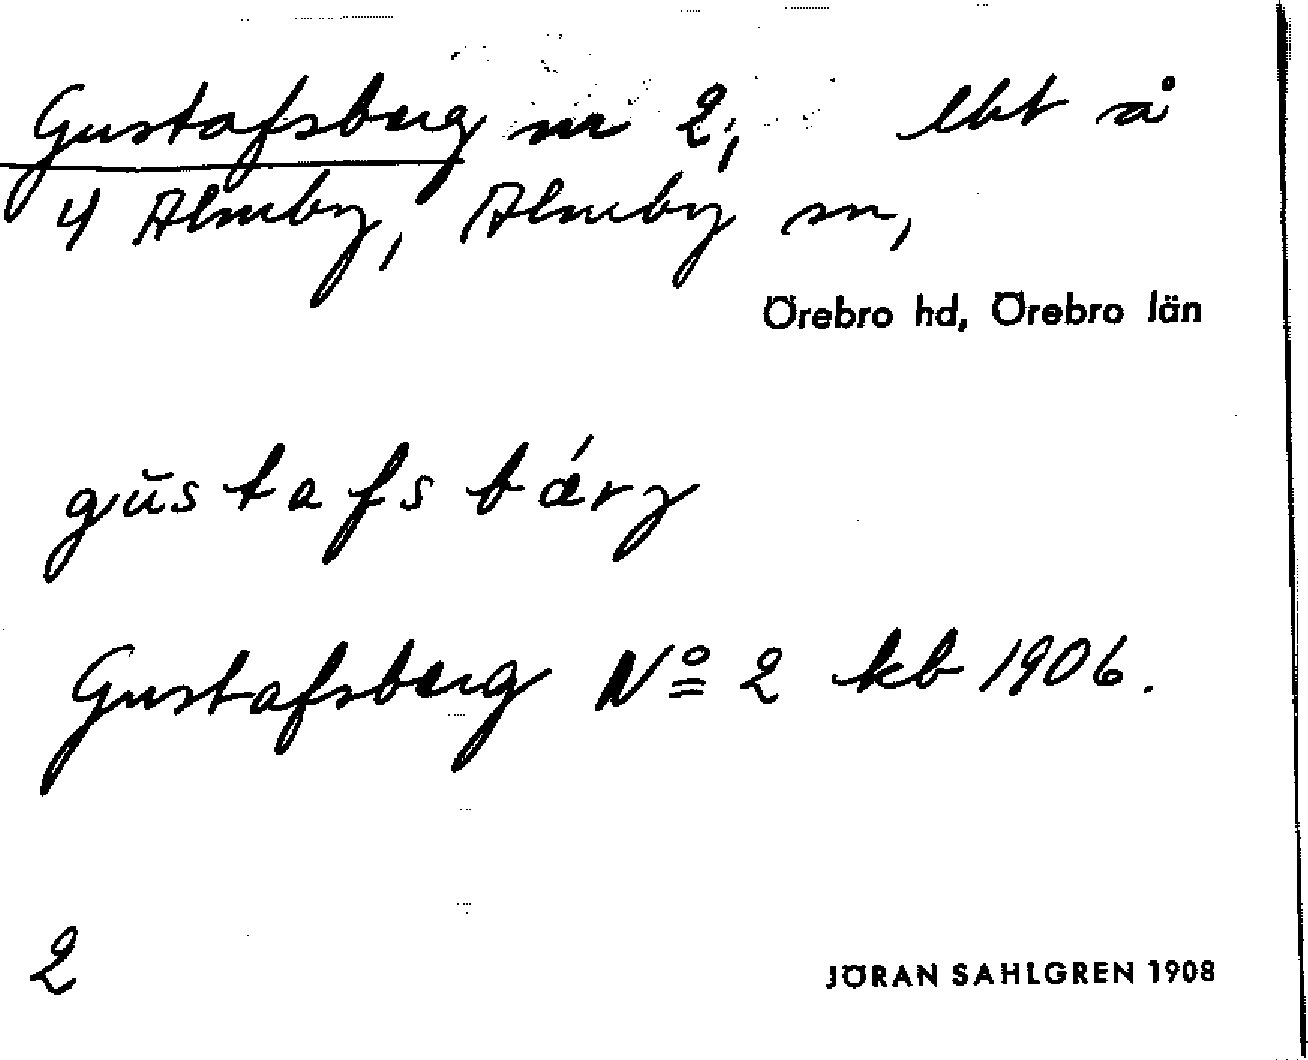 Gustafsberg nr 2, lht å
4 Almby, Almby sn,
Örebro hd, Örebro län
gŭstafsbǽrj
Gustafsberg Nº 2 kb 1906.
2
JÖRAN SAHLGREN 1908